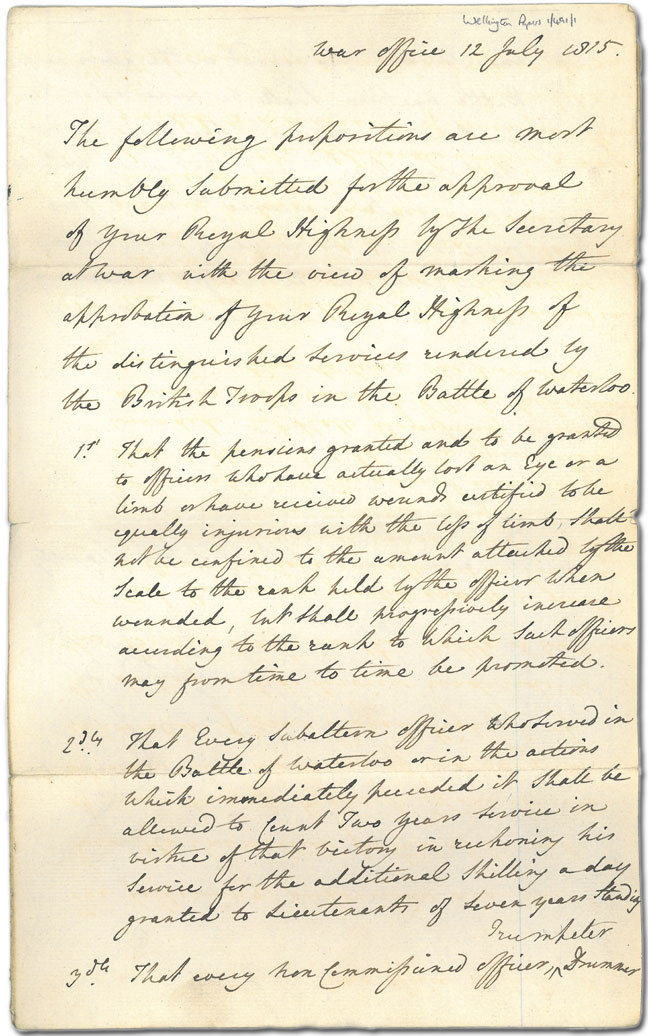 Wellington Papers 1/491/1
War office 12 July 1815.
The following propositions are most
humbly submitted for the approval
of your Royal Highness by the Secretary
at war with the view of marking the
approbation of your Royal Highness of
the distinguished services rendered by
the British Troops in the Battle of Waterloo.
1st That the pensions granted and to be granted
to officers who have actually lost an Eye or a
limb or have received wounds certified to be
equally injurious with the loss of limb, shall
not be confined to the amount attached by the
Scale to the rank held by the officer when
wounded, but shall progressively increase
according to the rank to which such officers
may from time to time be promoted.
2dly That Every Subaltern officer who served in
the Battle of Waterloo or in the actions
which immediately preceded it shall be
allowed to Count Two years service in
virtue of that victory in reckoning his
Service for the additional Shilling a day
granted to Lieutenants of seven years standing
Trumpeter
3dly That every non Commissioned officer, ^ Drummer